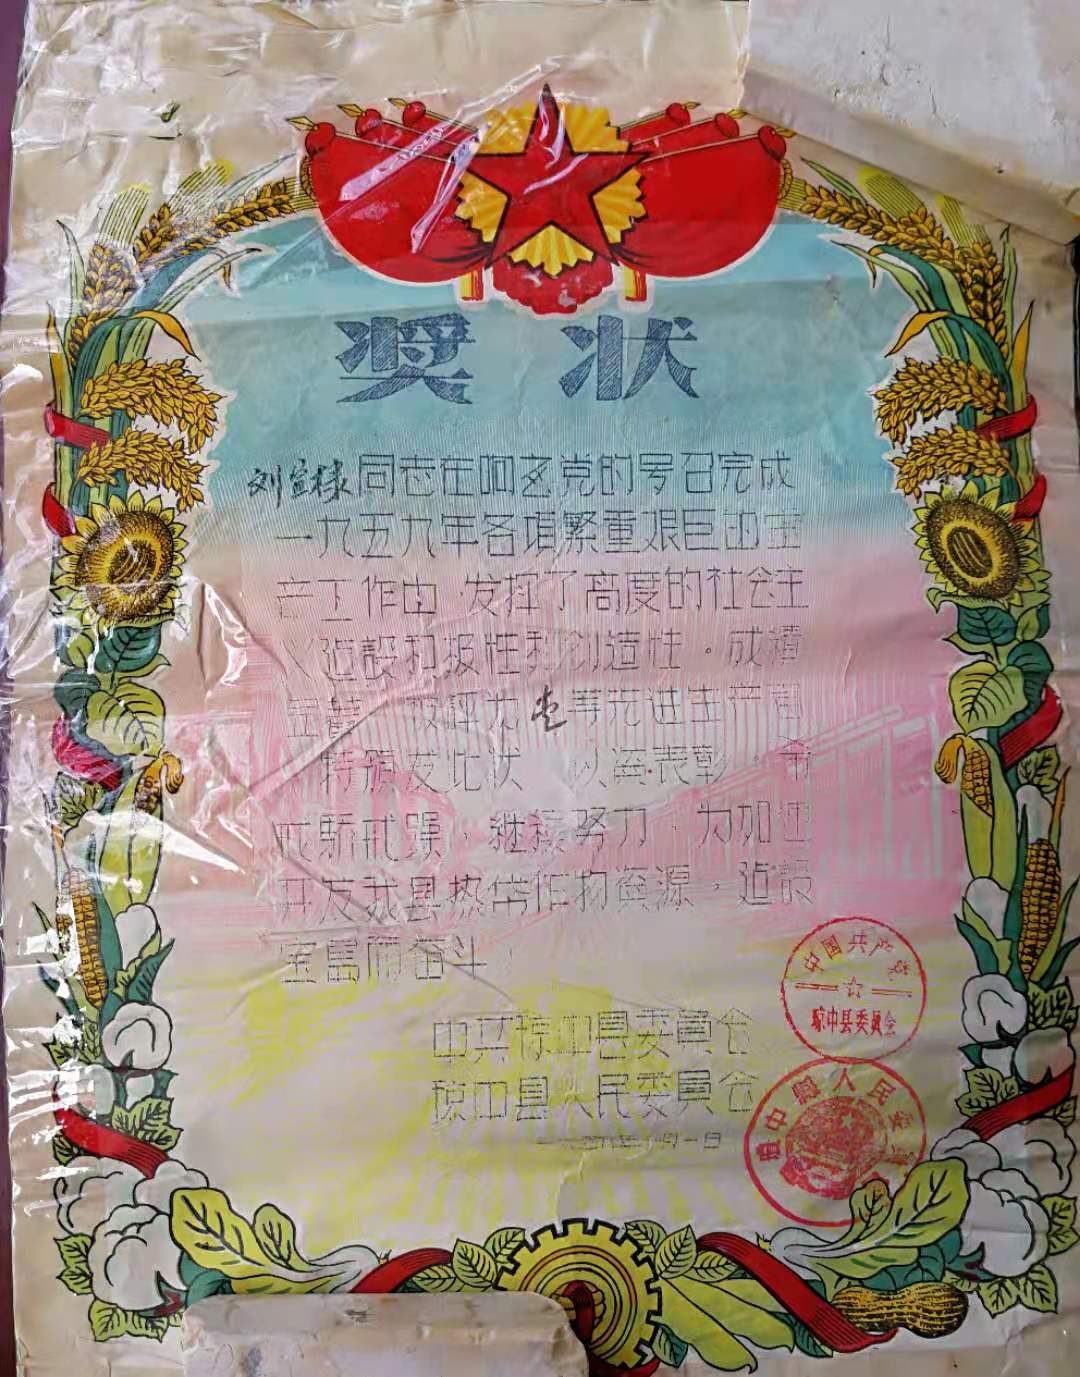 奖状
刘宣棣同志在响应党的号召完成
一九五九年各项繁重艰巨的生
产工作中,发挥了高度的社会主
义建設积极性和创造性。成績
显著,被評为壹等先进生产者
,特颁发此状,以资表彰,希
戒骄戒躁,继续努力,为加速
开发我县热带作物资源,建設
宝島而奋斗。
中共琼中县委員会
琼中县人民委員会
月一日
中国共产党
琼中县委员会
琼中縣人民委員